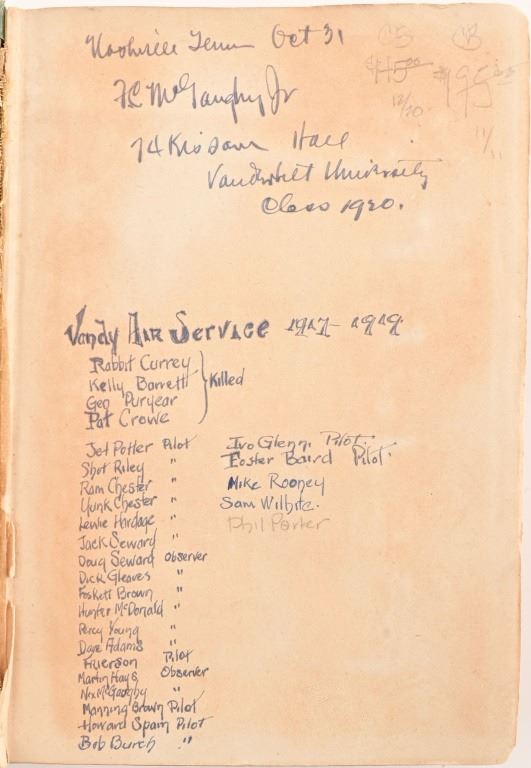 Nashville Tenn Oct 31
F.C. McGaughy Jr
74 Kissam Hall
Vanderbilt University
Class 1920.
$15.00
12/20
11/11
Vandy Air Service 1917-1919.
Rabbit Currey
Kelly Barrett
Gen Puryear
Pat Crowe
} Killed
Jet Potter Pilot
Shot Riley "
Ram Chester "
Yunk Chester "
Lewie Hardage "
Jack Seward "
Doug Seward Observer
Dick Gleaves "
Foskett Brown "
Hunter McDonald "
Percy Young "
Dave Adams "
Frierson Pilot
Martin Hays Observer
Nex McGaughy "
Manning Brown Pilot
Howard Spain Pilot
Bob Burch "
Ivo Glenn, Pilot.
Foster Baird Pilot.
Mike Rooney
Sam Wilhite.
Phil Porter